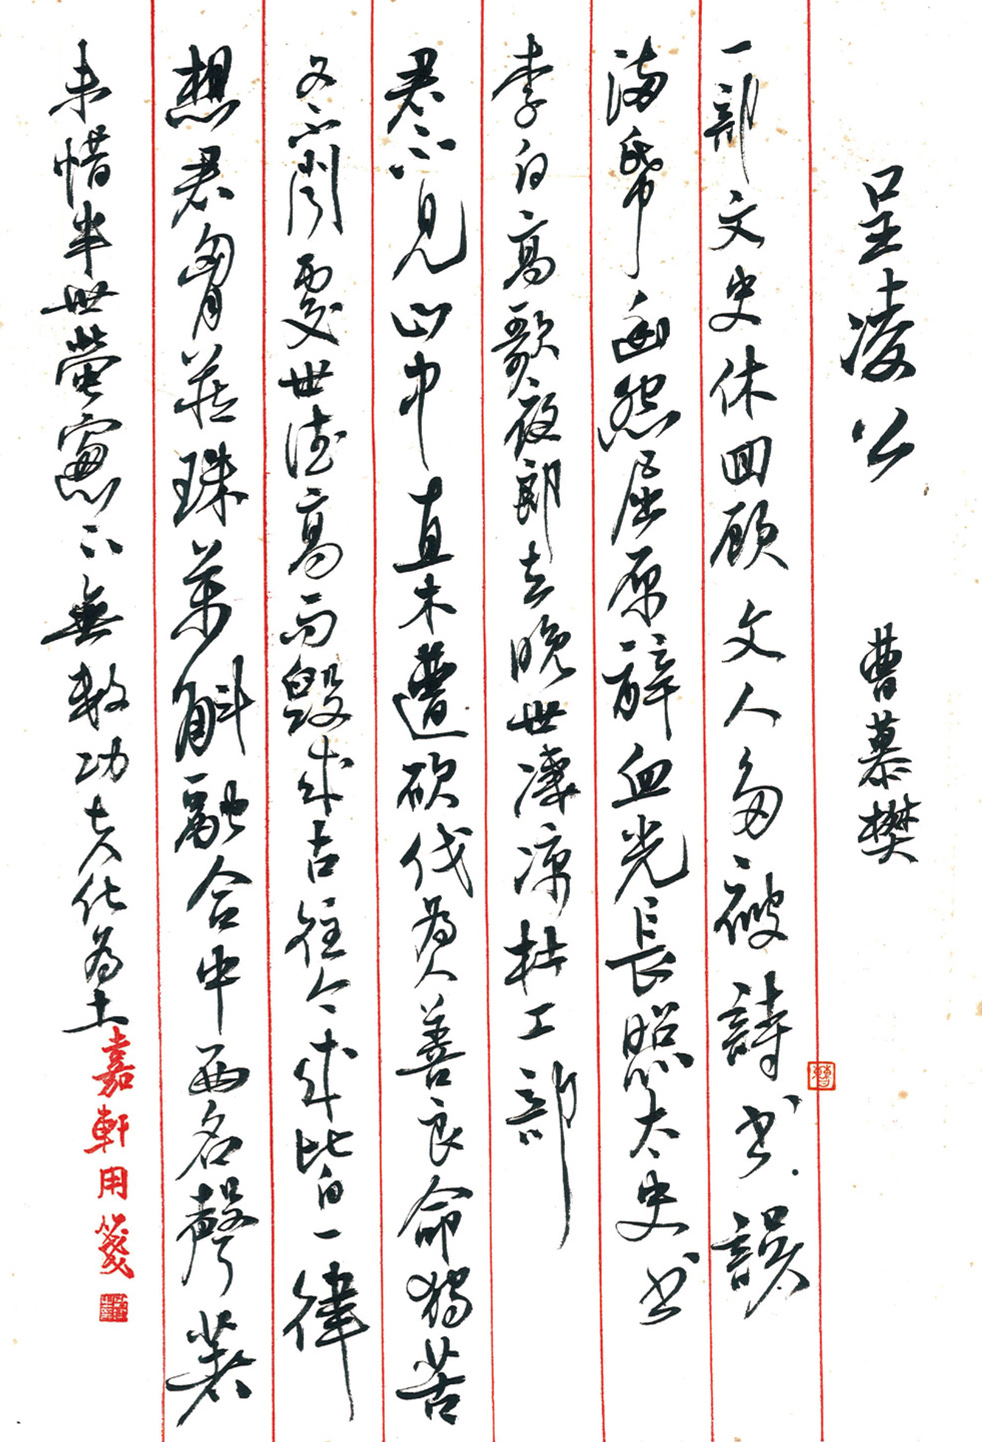 呈凌公 曹慕樊
一部文史休回顾文人多被詩书誤
满纸幽怨屈原辞血光長照太史书
李白高歌夜郎去晚世凄凉杜工部
君不见山中直木遭砍伐为人善良命獨苦
又不闻处世德高而毁来古往今来皆一律
想君胸藏珠万斛融合中西名聲著
未惜半世萤窗下無数功夫化为土
嘉軒用箋